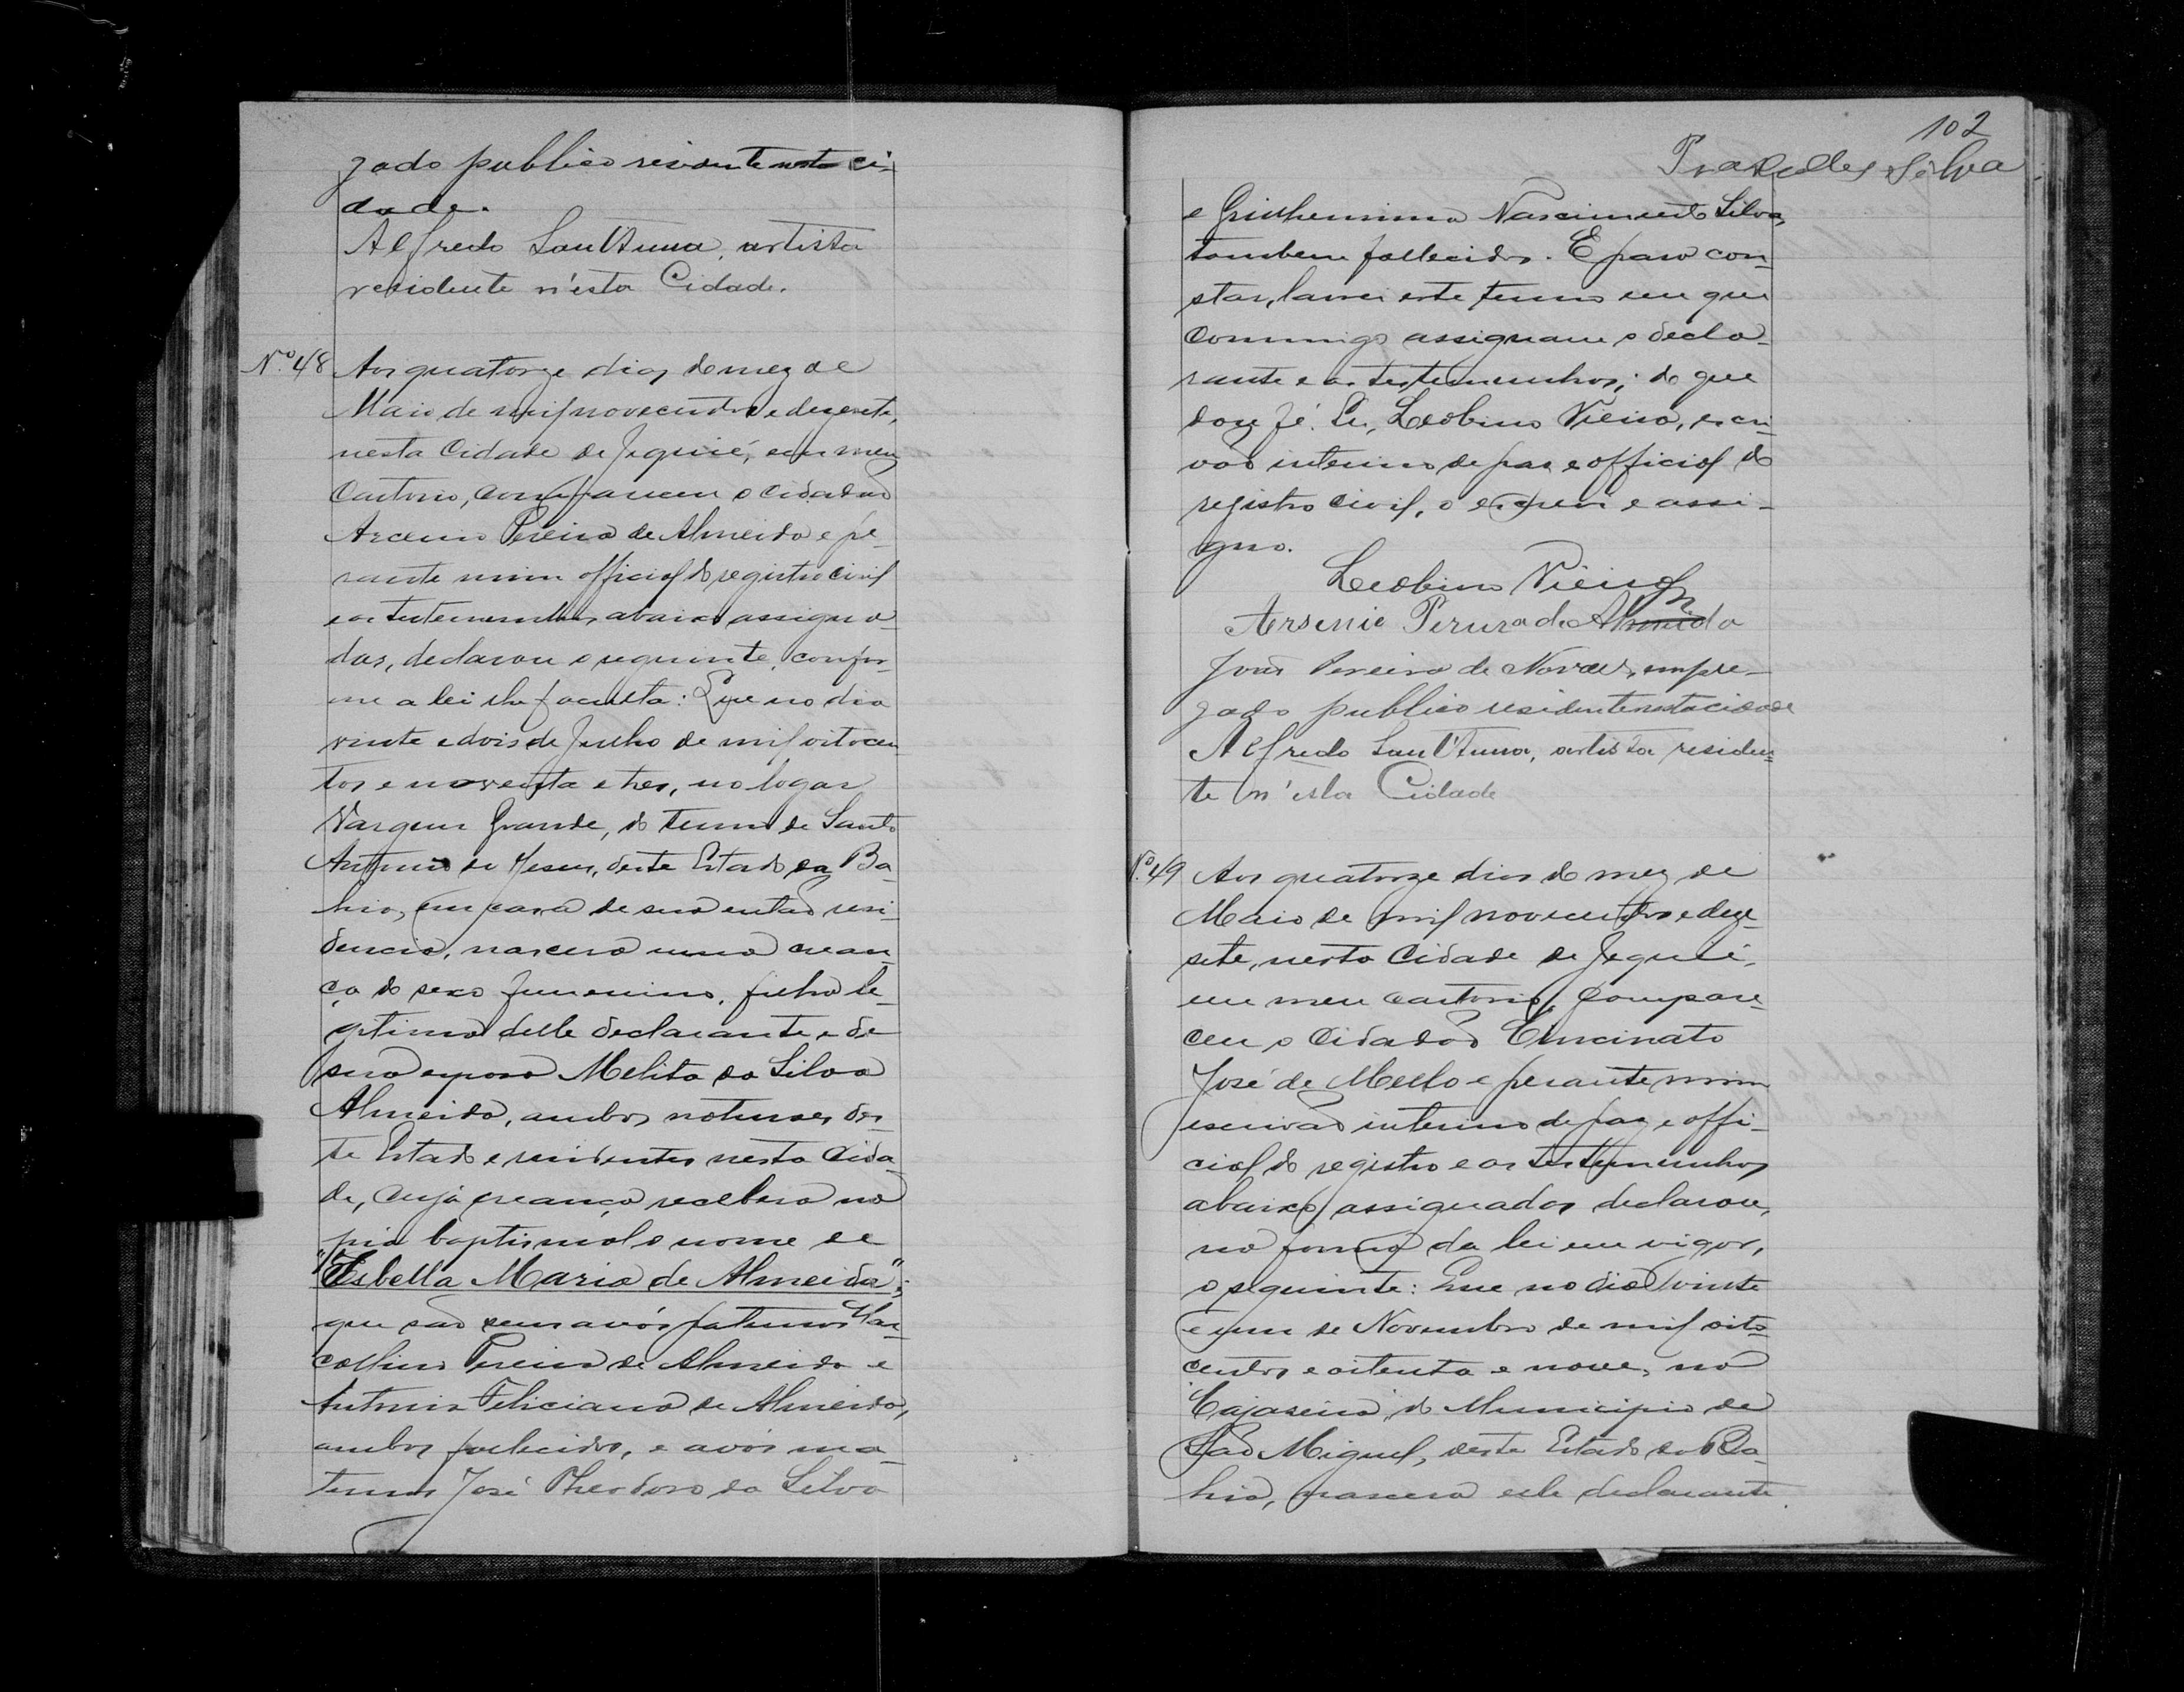 gado publico residente nesta ci-
dade.
Alfredo Sant'Anna, artista
residente n'esta Cidade.
Nº 48 Aos quatorze dias do mez de
Maio de mil novecentos e dezesete,
nesta Cidade de Jequié, em meu
Cartorio, compareceu o cidadão
Arcenio Pereira de Almeida e pe-
rante mim official do registro civil
e as testemunhas abaixo assigna-
das, declarou o seguinte, confor-
me a lei lhe faculta: Que no dia
vinte e dois de Julho de mil oitocen-
tos e noventa e tres, no logar
Vargem Grande, do termo de Santo
Antonio de Jesus, deste Estado da Ba-
hia, em casa de sua então resi-
dencia, nascera uma crean-
ça do sexo femenino, filha le-
gitima delle declarante e de
sua esposa Melita da Silva
Almeida, ambos naturaes des-
te Estado e residentes nesta Cida-
de, cuja creança recebera na
pia baptismal o nome de
"Isbella Maria de Almeida";
que são seus avós paternos Mar-
collino Pereira de Almeida e
Antonia Feliciana de Almeida,
ambos fallecidos, e avós ma-
ternos José Theodoro da Silva
102
Silva
e Guilhermina Nascimento Silva,
tambem fallecidos. E para con-
star, lavrei este termo em que
commigo assignam o decla-
rante e as testemunhas; do que
dou fé. Eu, Leobino Vieira, escri-
vão interino de paz e official do
registro civil, o escrevi e assi-
gno.
Leobino Vieira
Arsenio Pereira de Almeida
João Pereira de Novaes, empre-
gado publico residente nesta cidade
Alfredo Sant'Anna, artista residen-
te n'esta Cidade
Nº 49 Aos quatorze dias do mez de
Maio de mil novecentos e deze-
sete, nesta Cidade de Jequié,
em meu cartorio, compare-
ceu o Cidadão Cincinato
José de Mello e perante mim
escrivão interino de paz e offi-
cial do registro e as testemunhas
abaixo assignadas declarou,
na forma da lei em vigor,
o seguinte: Que no dia vinte
e um de Novembro de mil oito-
centos e oitenta e nove, na
"Cajaseira", do Municipio de
São Miguel, deste Estado da Ba-
hia, nascera elle declarante